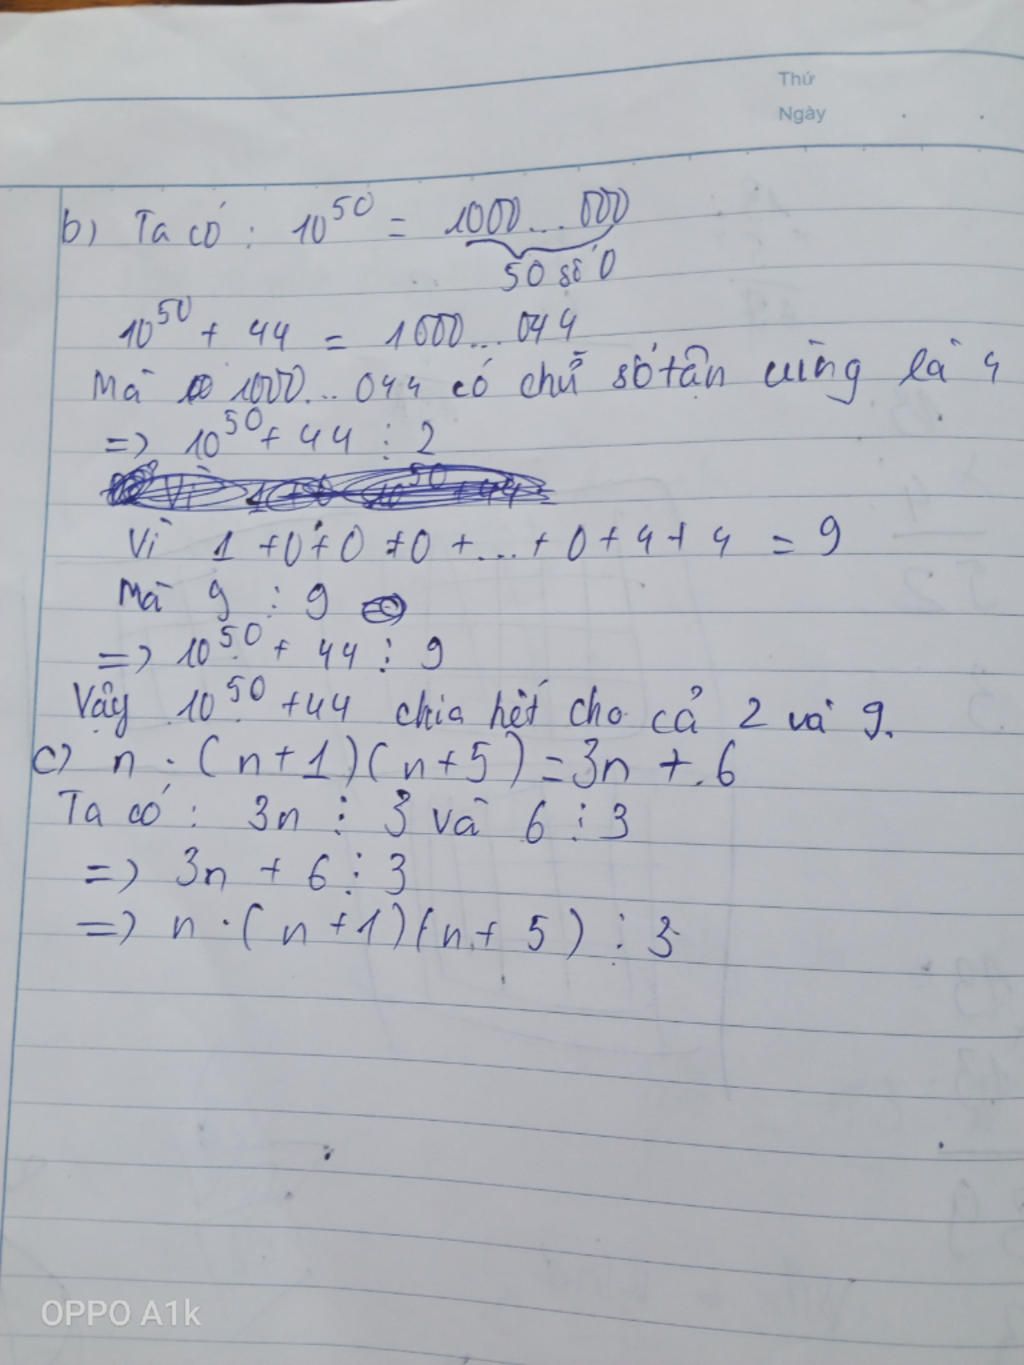 Thứ
Ngày
b) Ta có : 10^50 = 1000...000
50 số 0
10^50 + 44 = 1000...044
Mà 1000...044 có chữ số tận cùng là 4
=> 10^50 + 44 ⋮ 2
Vì 1 + 0 + 0 + 0 + ... + 0 + 4 + 4 = 9
Mà 9 ⋮ 9
=> 10^50 + 44 ⋮ 9
Vậy 10^50 + 44 chia hết cho cả 2 và 9.
c) n . (n+1)(n+5) = 3n + 6
Ta có : 3n ⋮ 3 và 6 ⋮ 3
=> 3n + 6 ⋮ 3
=> n . (n+1)(n+5) ⋮ 3
OPPO A1k